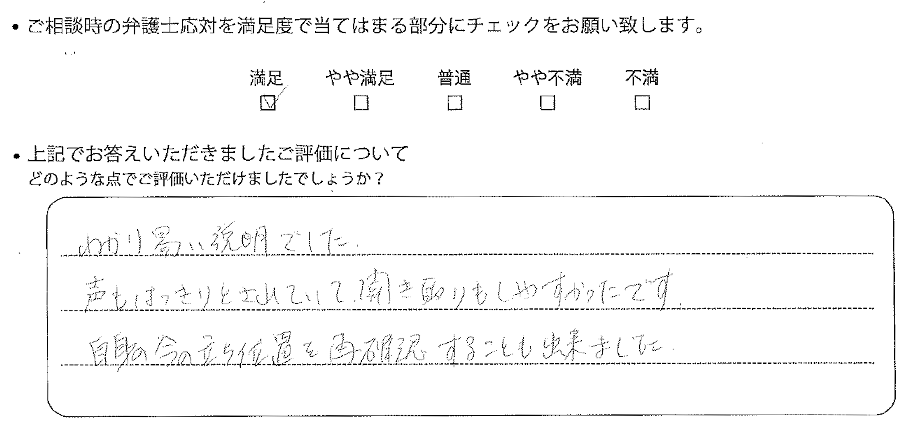 • ご相談時の弁護士応対を満足度で当てはまる部分にチェックをお願い致します。
満足 やや満足 普通 やや不満 不満
☑ □ □ □ □
• 上記でお答えいただきましたご評価について
どのような点でご評価いただけましたでしょうか？
わかり易い説明でした.
声もはっきりとされていて、聞き取りもしやすかったです.
自身の今の立ち位置を再確認することも出来ました.